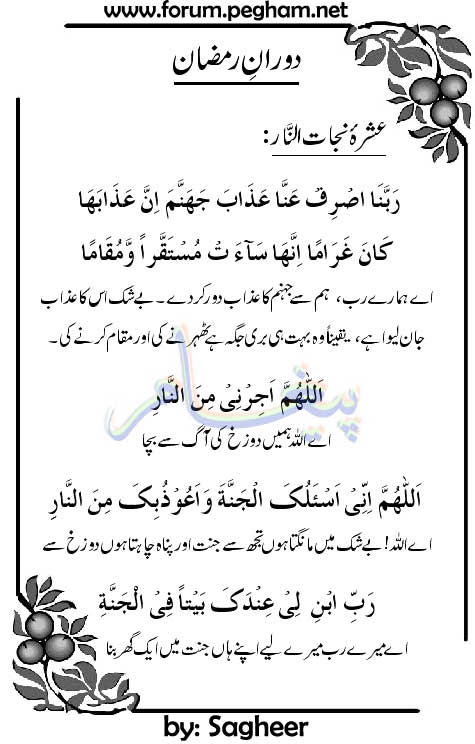 www.forum.pegham.net
دورانِ رمضان
عشرۂ نجات النّار:
رَبَّنَا اصْرِفْ عَنَّا عَذَابَ جَهَنَّمَ اِنَّ عَذَابَهَا
كَانَ غَرَامًا اِنَّهَا سَآءَ تْ مُسْتَقَّراً وَّمُقَامًا
اے ہمارے رب، ہم سے جہنم کا عذاب دور کردے۔ بے شک اس کا عذاب
جان لیوا ہے، یقیناً وہ بہت ہی بری جگہ ہے ٹھہرنے کی اور مقام کرنے کی۔
پیغام
اَللّٰهُمَّ اَجِرْنِیْ مِنَ النَّارِ
اے اللہ ہمیں دوزخ کی آگ سے بچا
اَللّٰهُمَّ اِنِّیْ اَسْئَلُکَ الْجَنَّةَ وَاَعُوْذُبِکَ مِنَ النَّارِ
اے اللہ! بے شک میں مانگتا ہوں تجھ سے جنت اور پناہ چاہتا ہوں دوزخ سے
رَبِّ ابْنِ لِیْ عِنْدَکَ بَیْتاً فِیْ الْجَنَّةِ
اے میرے رب میرے لیے اپنے ہاں جنت میں ایک گھر بنا
by: Sagheer